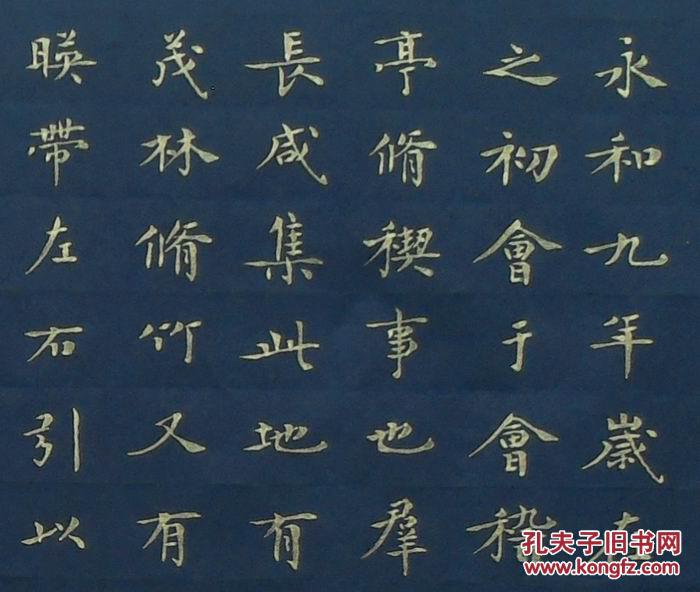 永和九年歲在
之初會于會稽
亭脩稧事也羣
長咸集此地有
茂林脩竹又有
暎帶左右引以
孔夫子旧书网
www.kongfz.com